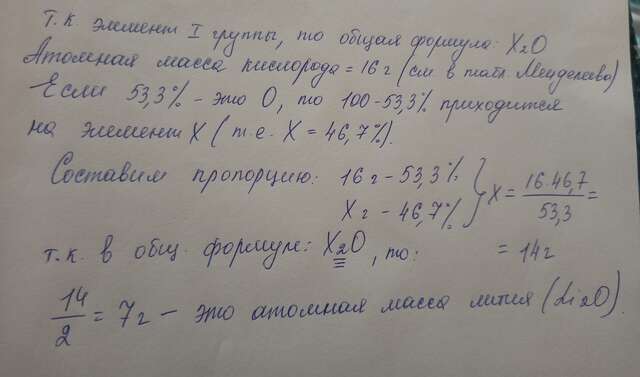 т.к. элемент I группы, то общая формула: X₂O
Атомная масса кислорода = 16 г (см. в табл. Менделеева)
Если 53,3% - это O, то 100-53,3% приходится
на элемент X (т.е. X = 46,7%).
Составим пропорцию: 16 г - 53,3% } X = 16·46,7 / 53,3 =
X г - 46,7%
т.к. в общ. формуле: X₂O, то: = 14 г
14 / 2 = 7 г - это атомная масса лития (Li₂O).